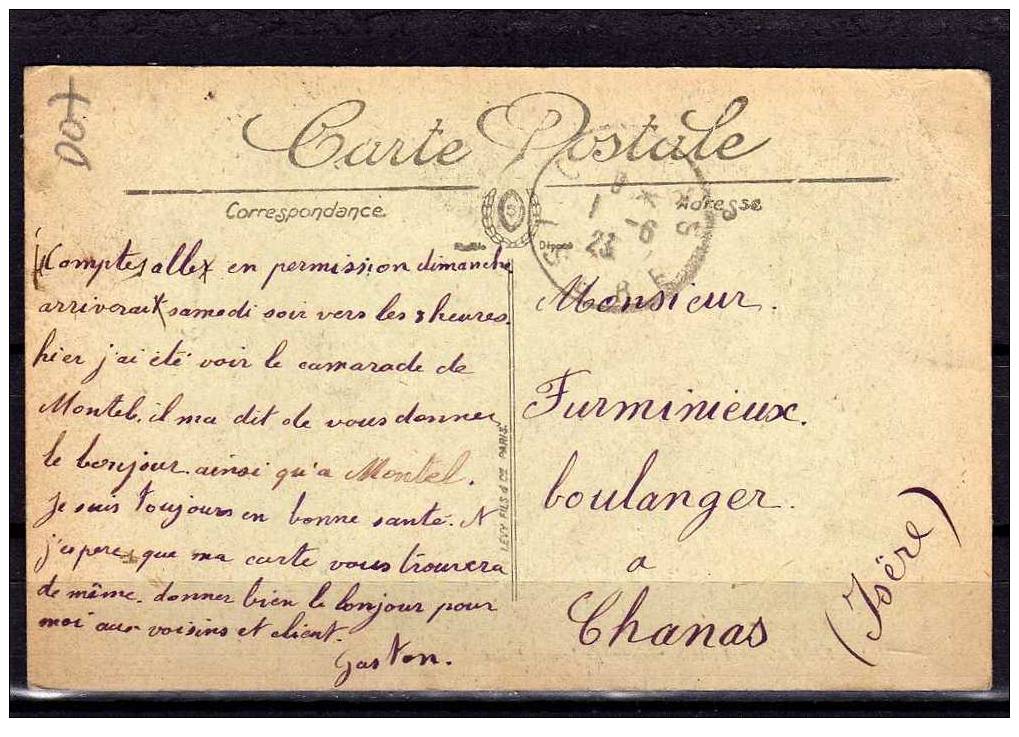 DOT
Carte Postale
Correspondance
Adresse
Comptes aller en permission dimanche
arriverait samedi soir vers les 8 heures.
hier j'ai été voir le camarade de
Montel. il ma dit de vous donner
le bonjour ainsi qu'a Montel.
Je suis toujours en bonne santé.
j'espere que ma carte vous trouvera
de même. donner bien le bonjour pour
moi aux voisins et client.
Gaston.
LEVY FILS & Cie PARIS.
1 -6
23
Monsieur.
Furminieux.
boulanger.
a
Chanas
(Isère)